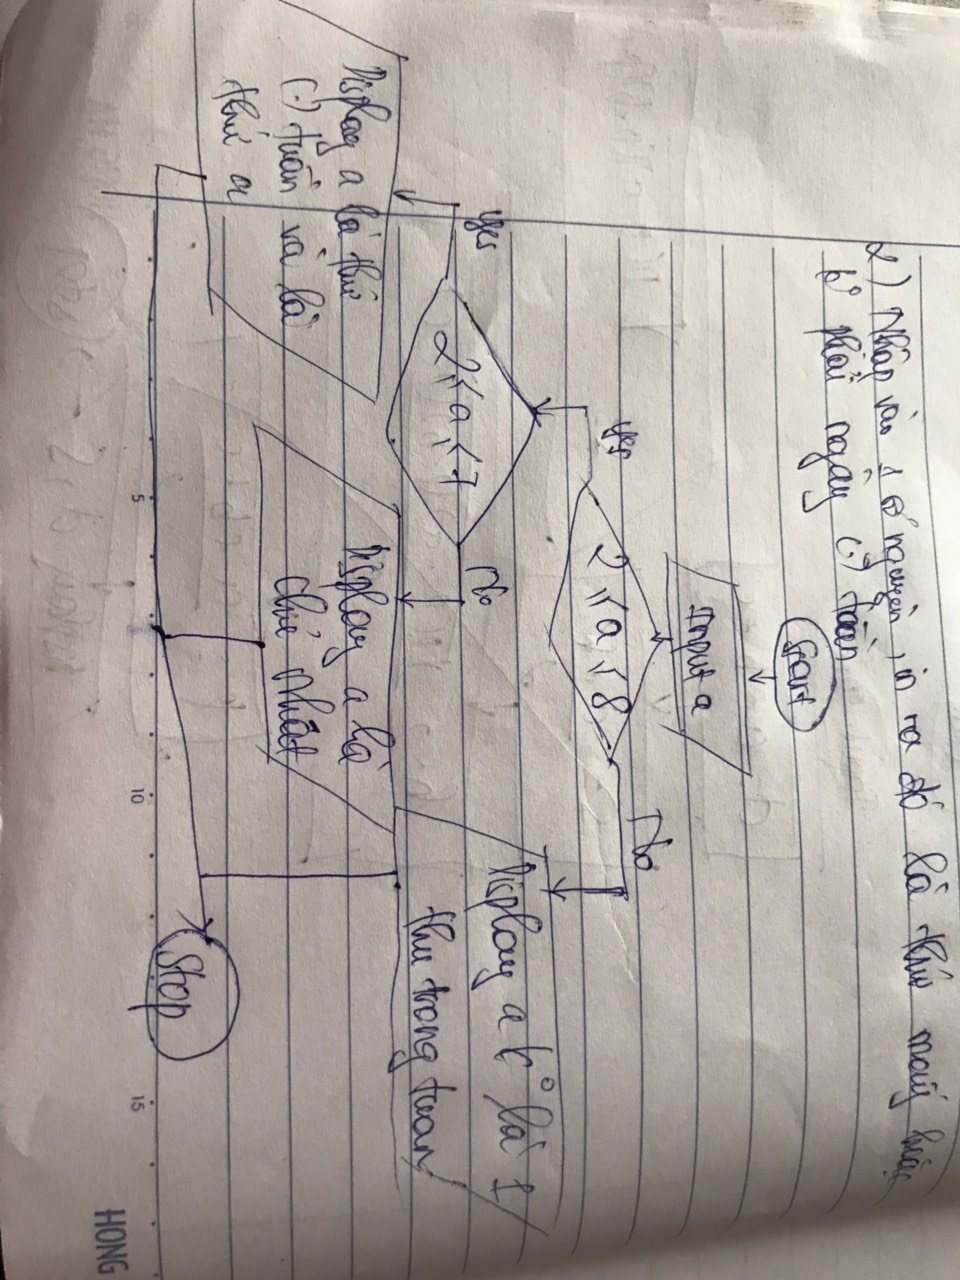 2) Nhập vào 1 số nguyên, in ra đó là thứ mấy hoặc
k° phải ngày (.) tuần
Start
Input a
2 ≤ a ≤ 8
yes
No
2 ≤ a ≤ 7
yes
No
Display a k° là 1
thu trong tuan
Display a là thứ
(.) tuần và là
thứ a
Display a là
chủ nhật
Stop
5
10
15
HONG